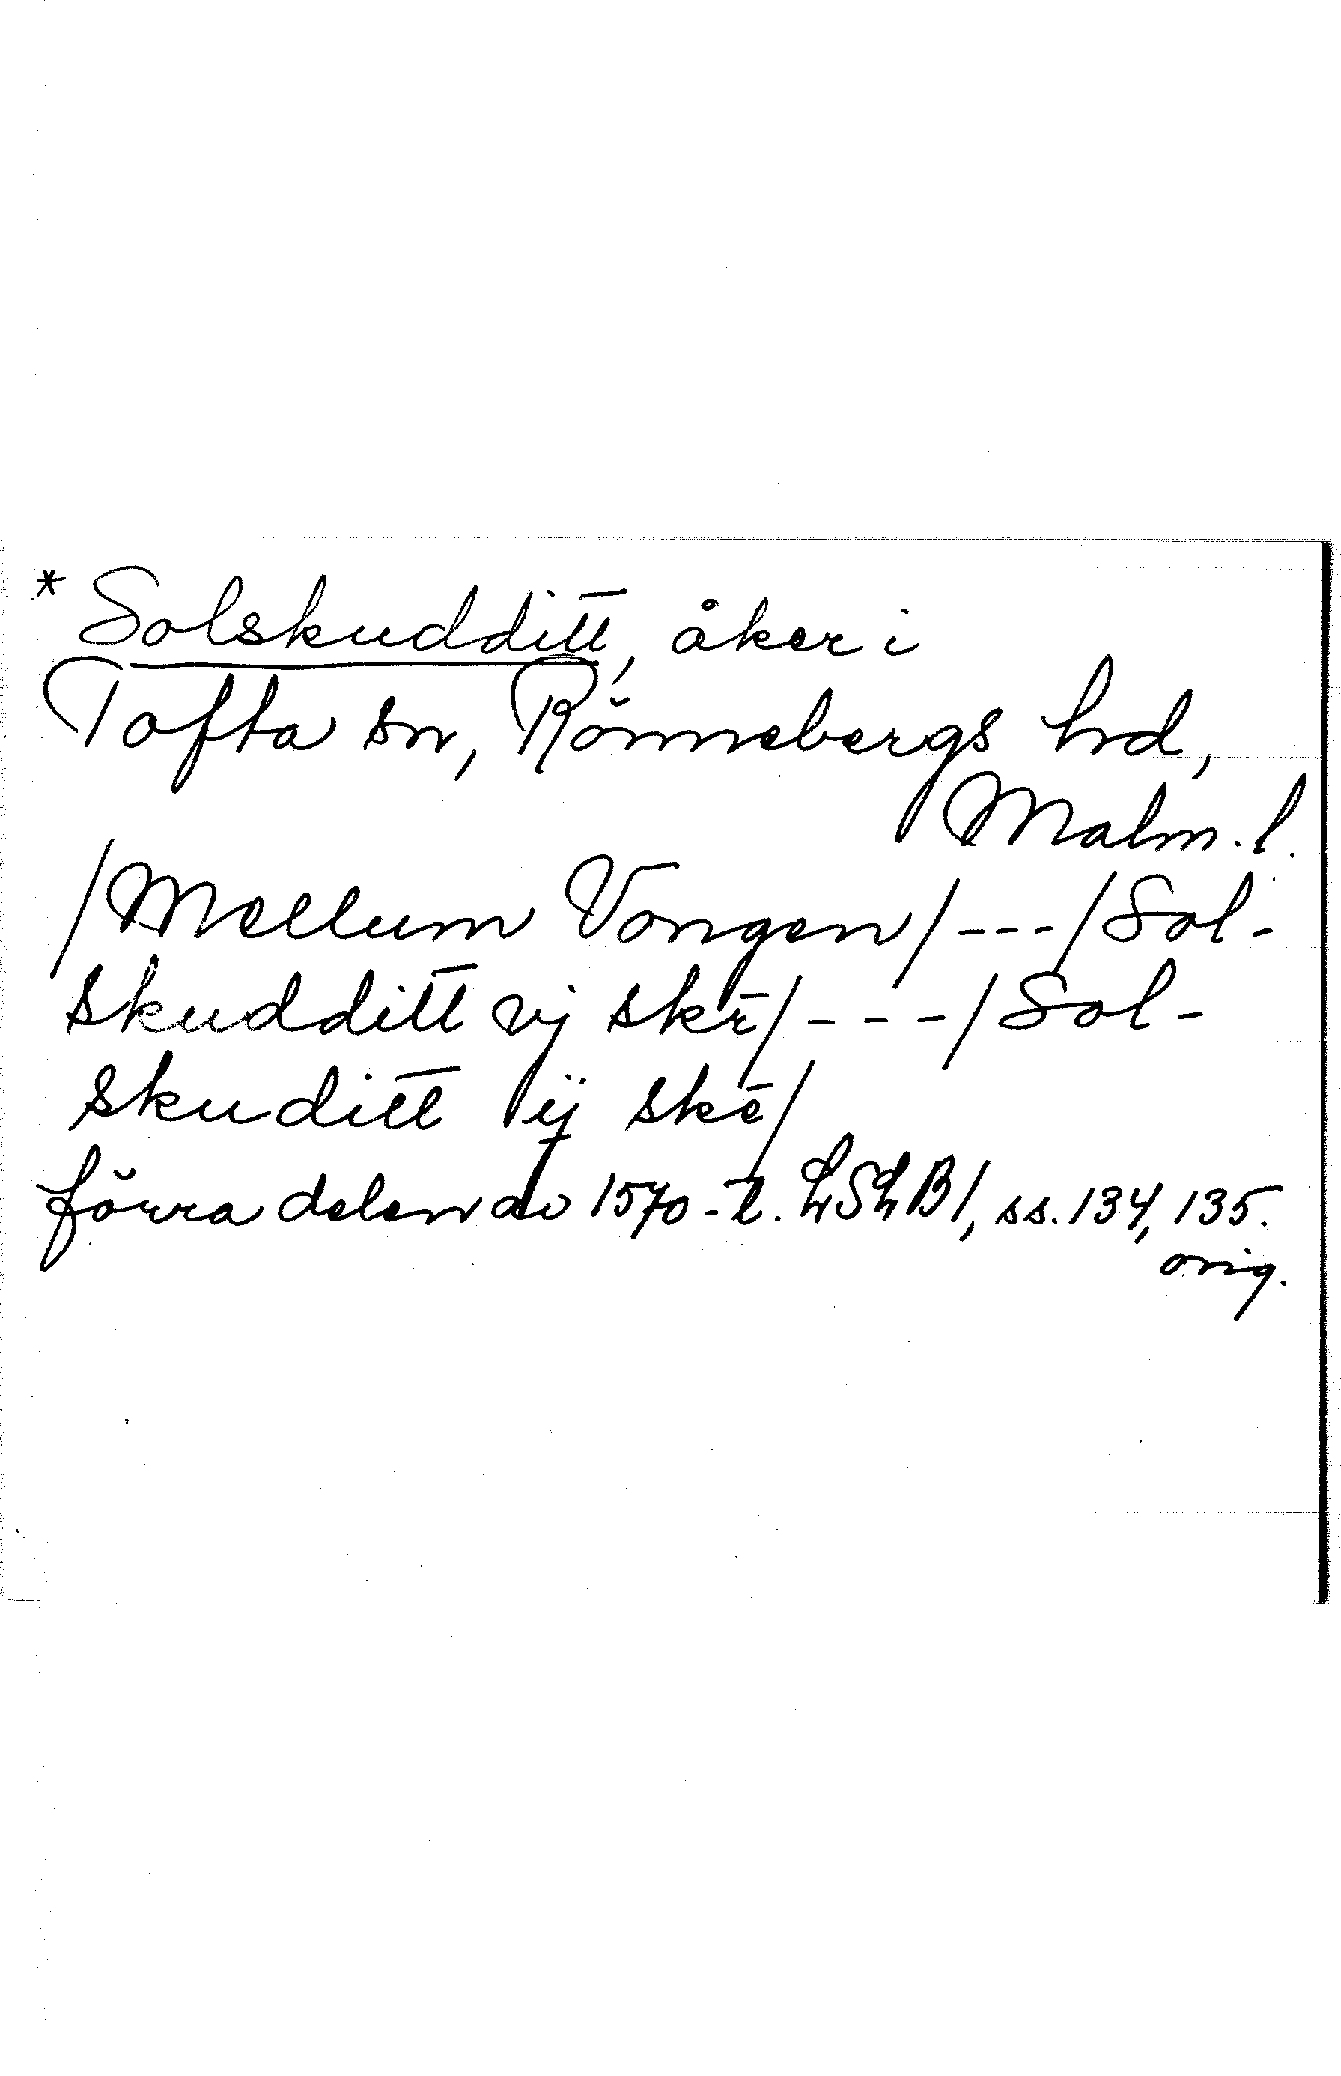 *Solskudditt, åker i
Tofta sn, Rönnebergs hd,
Malm. l.
/Mellum Vongen/---/Sol-
skudditt vj skē/---/Sol-
skuditt ij skē/
förra delen av 1570-t. LSLB 1, ss. 134, 135.
orig.